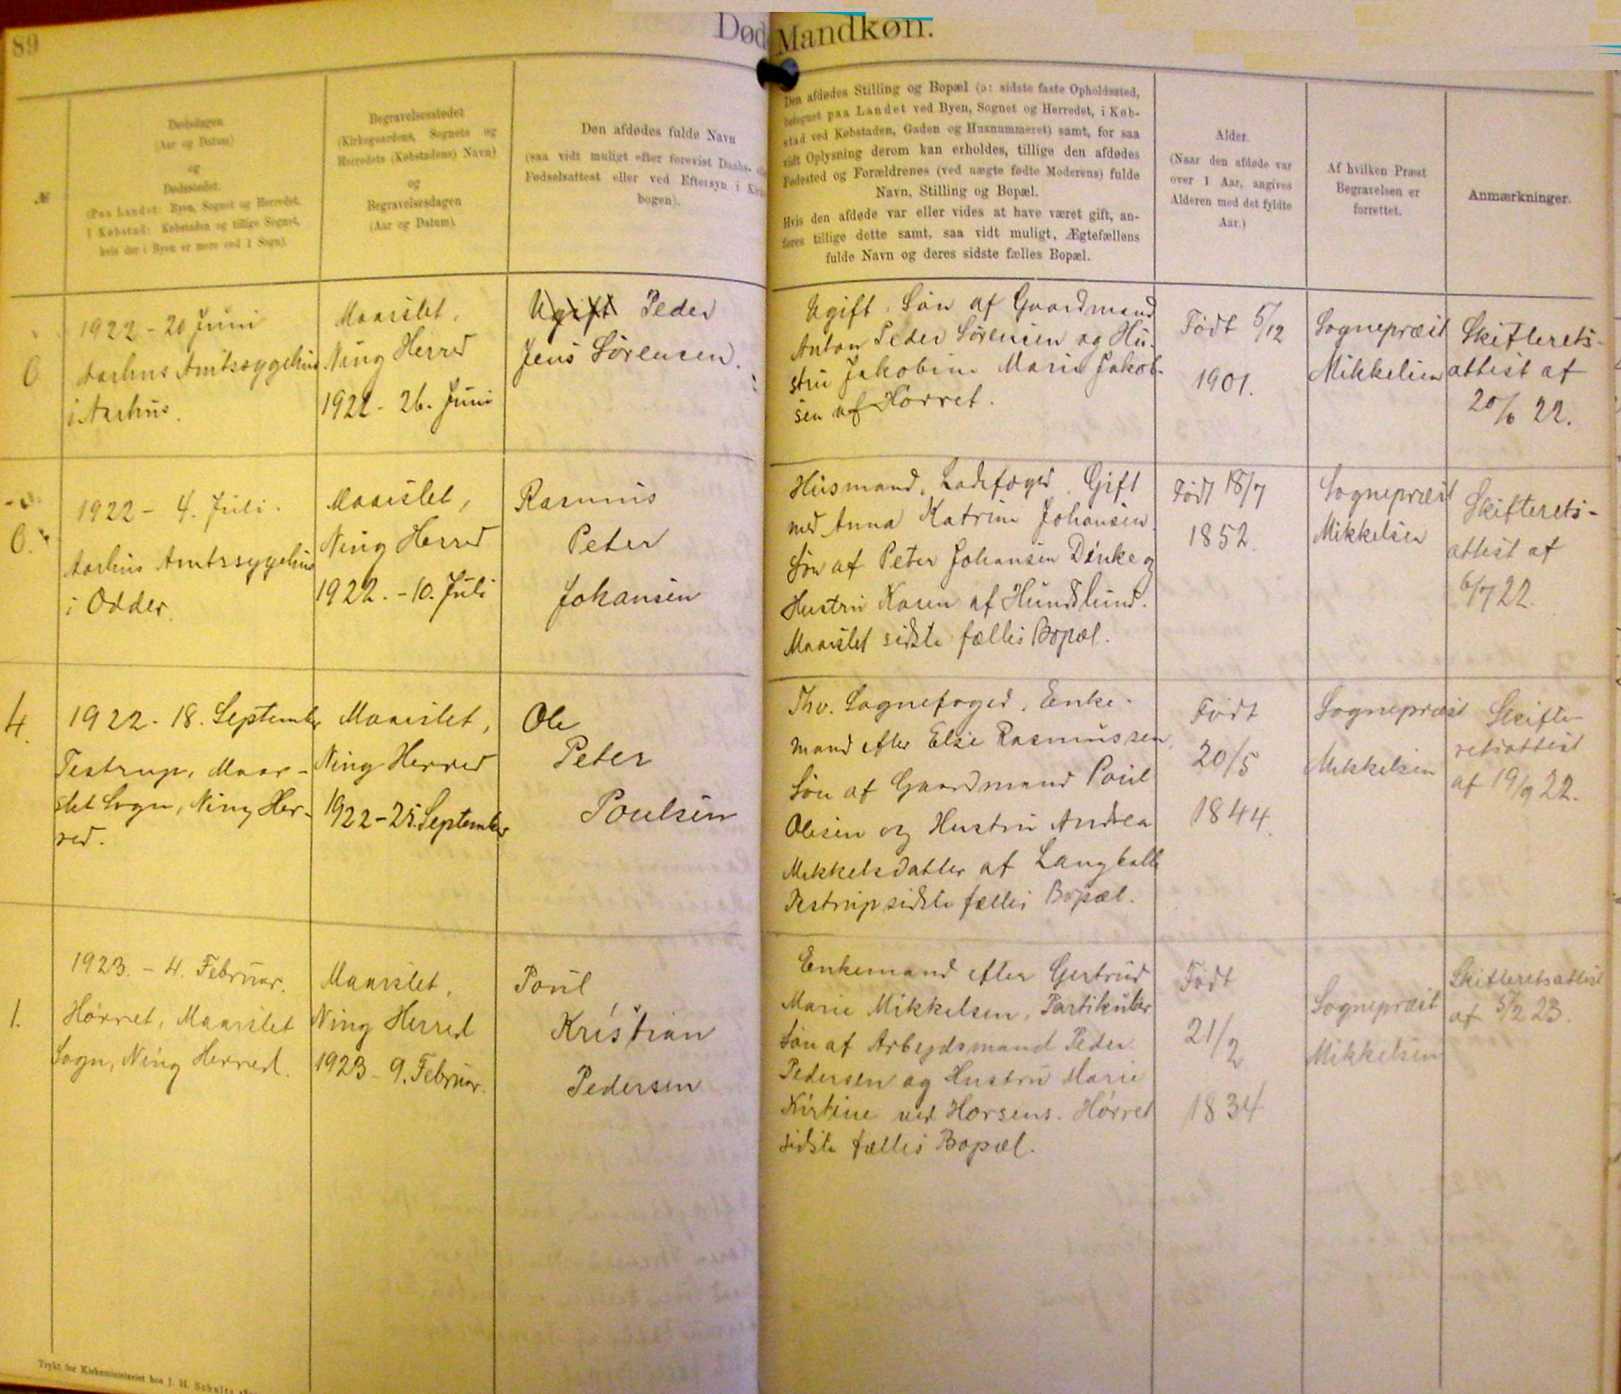 89
Død Mandkøn.
№
Dødsdagen
(Aar og Datum)
og
Dødsstedet.
(Paa Landet: Byen, Sognet og Herredet.
I Købstad: Købstaden og tillige Sognet,
hvis der i Byen er mere end 1 Sogn).
Begravelsesstedet
(Kirkegaardens, Sognets og
Herredets (Købstadens) Navn)
og
Begravelsesdagen
(Aar og Datum).
Den afdødes fulde Navn
(saa vidt muligt efter forevist Daabs-
Fødselsattest eller ved Eftersyn i
bogen).
Den afdødes Stilling og Bopæl (ɔ: sidste faste Opholdssted,
betegnet paa Landet ved Byen, Sognet og Herredet, i Køb-
stad ved Købstaden, Gaden og Husnummeret) samt, for saa
vidt Oplysning derom kan erholdes, tillige den afdødes
Fødested og Forældrenes (ved uægte fødte Moderens) fulde
Navn, Stilling og Bopæl.
Hvis den afdøde var eller vides at have været gift, an-
føres tillige dette samt, saa vidt muligt, Ægtefællens
fulde Navn og deres sidste fælles Bopæl.
Alder.
(Naar den afdøde var
over 1 Aar, angives
Alderen med det fyldte
Aar.)
Af hvilken Præst
Begravelsen er
forrettet.
Anmærkninger.
0
1922 - 20 Juni
Aarhus Amtssygehus
i Aarhus.
Maarslet,
Ning Herred
1922 - 26. Juni
Ugift Peder
Jens Sørensen.
Ugift. Søn af Gaardmand
Anton Peder Sørensen og Hu-
stru Jakobine Marie Jakob-
sen af Hørret.
Født 5/12
1901.
Sognepræst
Mikkelsen
Skifterets-
attest af
20/6 22.
0.
1922 - 4. Juli.
Aarhus Amtssygehus
i Odder.
Maarslet,
Ning Herred
1922. - 10. Juli
Rasmus
Peter
Johansen
Husmand, Ladefoged. Gift
med Anna Katrine Johansen.
Søn af Peter Johansen Dinke og
Hustru Karen af Hundslund.
Maarslet sidste fælles Bopæl.
Født 18/7
1852.
Sognepræst
Mikkelsen
Skifterets-
attest af
6/7 22.
4.
1922 - 18. September
Testrup, Maar-
slet Sogn, Ning Her-
red.
Maarslet,
Ning Herred
1922 - 25. September
Ole
Peter
Poulsen
Fhv. Sognefoged. Enke-
mand efter Else Rasmussen,
Søn af Gaardmand Poul
Olesen og Hustru Andrea
Mikkelsdatter af Langballe
Testrup sidste fælles Bopæl.
Født
20/5
1844.
Sognepræst
Mikkelsen
Skifte-
retsattest
af 19/9 22.
1.
1923. - 4. Februar.
Hørret, Maarslet
Sogn, Ning Herred.
Maarslet,
Ning Herred
1923 - 9. Februar.
Poul
Kristian
Pedersen
Enkemand efter Gertrud
Marie Mikkelsen, Partikulier
Søn af Arbejdsmand Peder
Pedersen og Hustru Marie
Kirstine ved Horsens. Hørret
sidste fælles Bopæl.
Født
21/2
1834
Sognepræst
Mikkelsen
Skifteretsattest
af 5/2 23.
Trykt for Kirkeministeriet hos J. H. Schultz